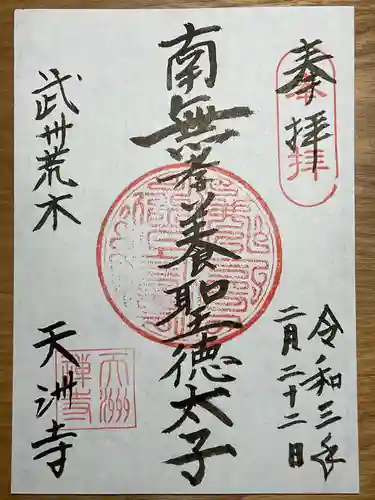 奉拝
令和三年
二月二十二日
南無孝養聖徳太子
武州荒木
天洲寺